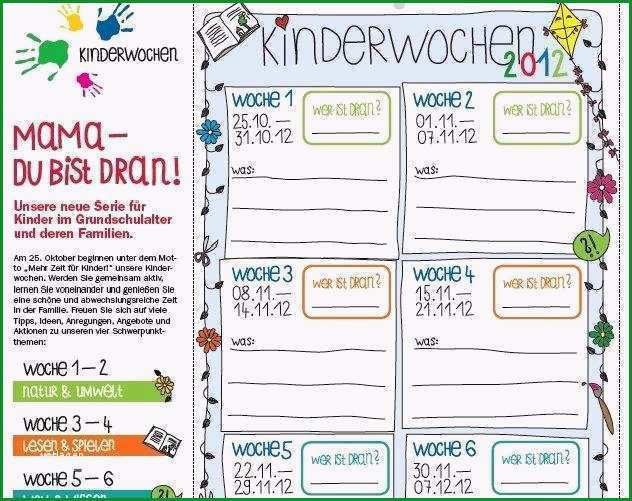 KINDERWOCHEN
MAMA –
DU BIST DRAN!
Unsere neue Serie für
Kinder im Grundschulalter
und deren Familien.
Am 25. Oktober beginnen unter dem Mot-
to „Mehr Zeit für Kinder!“ unsere Kinder-
wochen. Werden Sie gemeinsam aktiv,
lernen Sie voneinander und genießen Sie
eine schöne und abwechslungsreiche Zeit
in der Familie. Freuen Sie sich auf viele
Tipps, Ideen, Anregungen, Angebote und
Aktionen zu unseren vier Schwerpunkt-
themen:
WOCHE 1 – 2
NATUR & UMWELT
WOCHE 3 – 4
LESEN & SPIELEN
WOCHE 5 – 6
KINDERWOCHEN
2012
WOCHE 1
25.10.–
31.10.12
WER IST DRAN?
WAS:
WOCHE 2
01.11.–
07.11.12
WER IST DRAN?
WAS:
WOCHE 3
08.11.–
14.11.12
WER IST DRAN?
WAS:
WOCHE 4
15.11.–
21.11.12
WER IST DRAN?
WAS:
?!
WOCHE 5
22.11.–
29.11.12
WER IST DRAN?
WOCHE 6
30.11.–
07.12.12
WER IST DRAN?